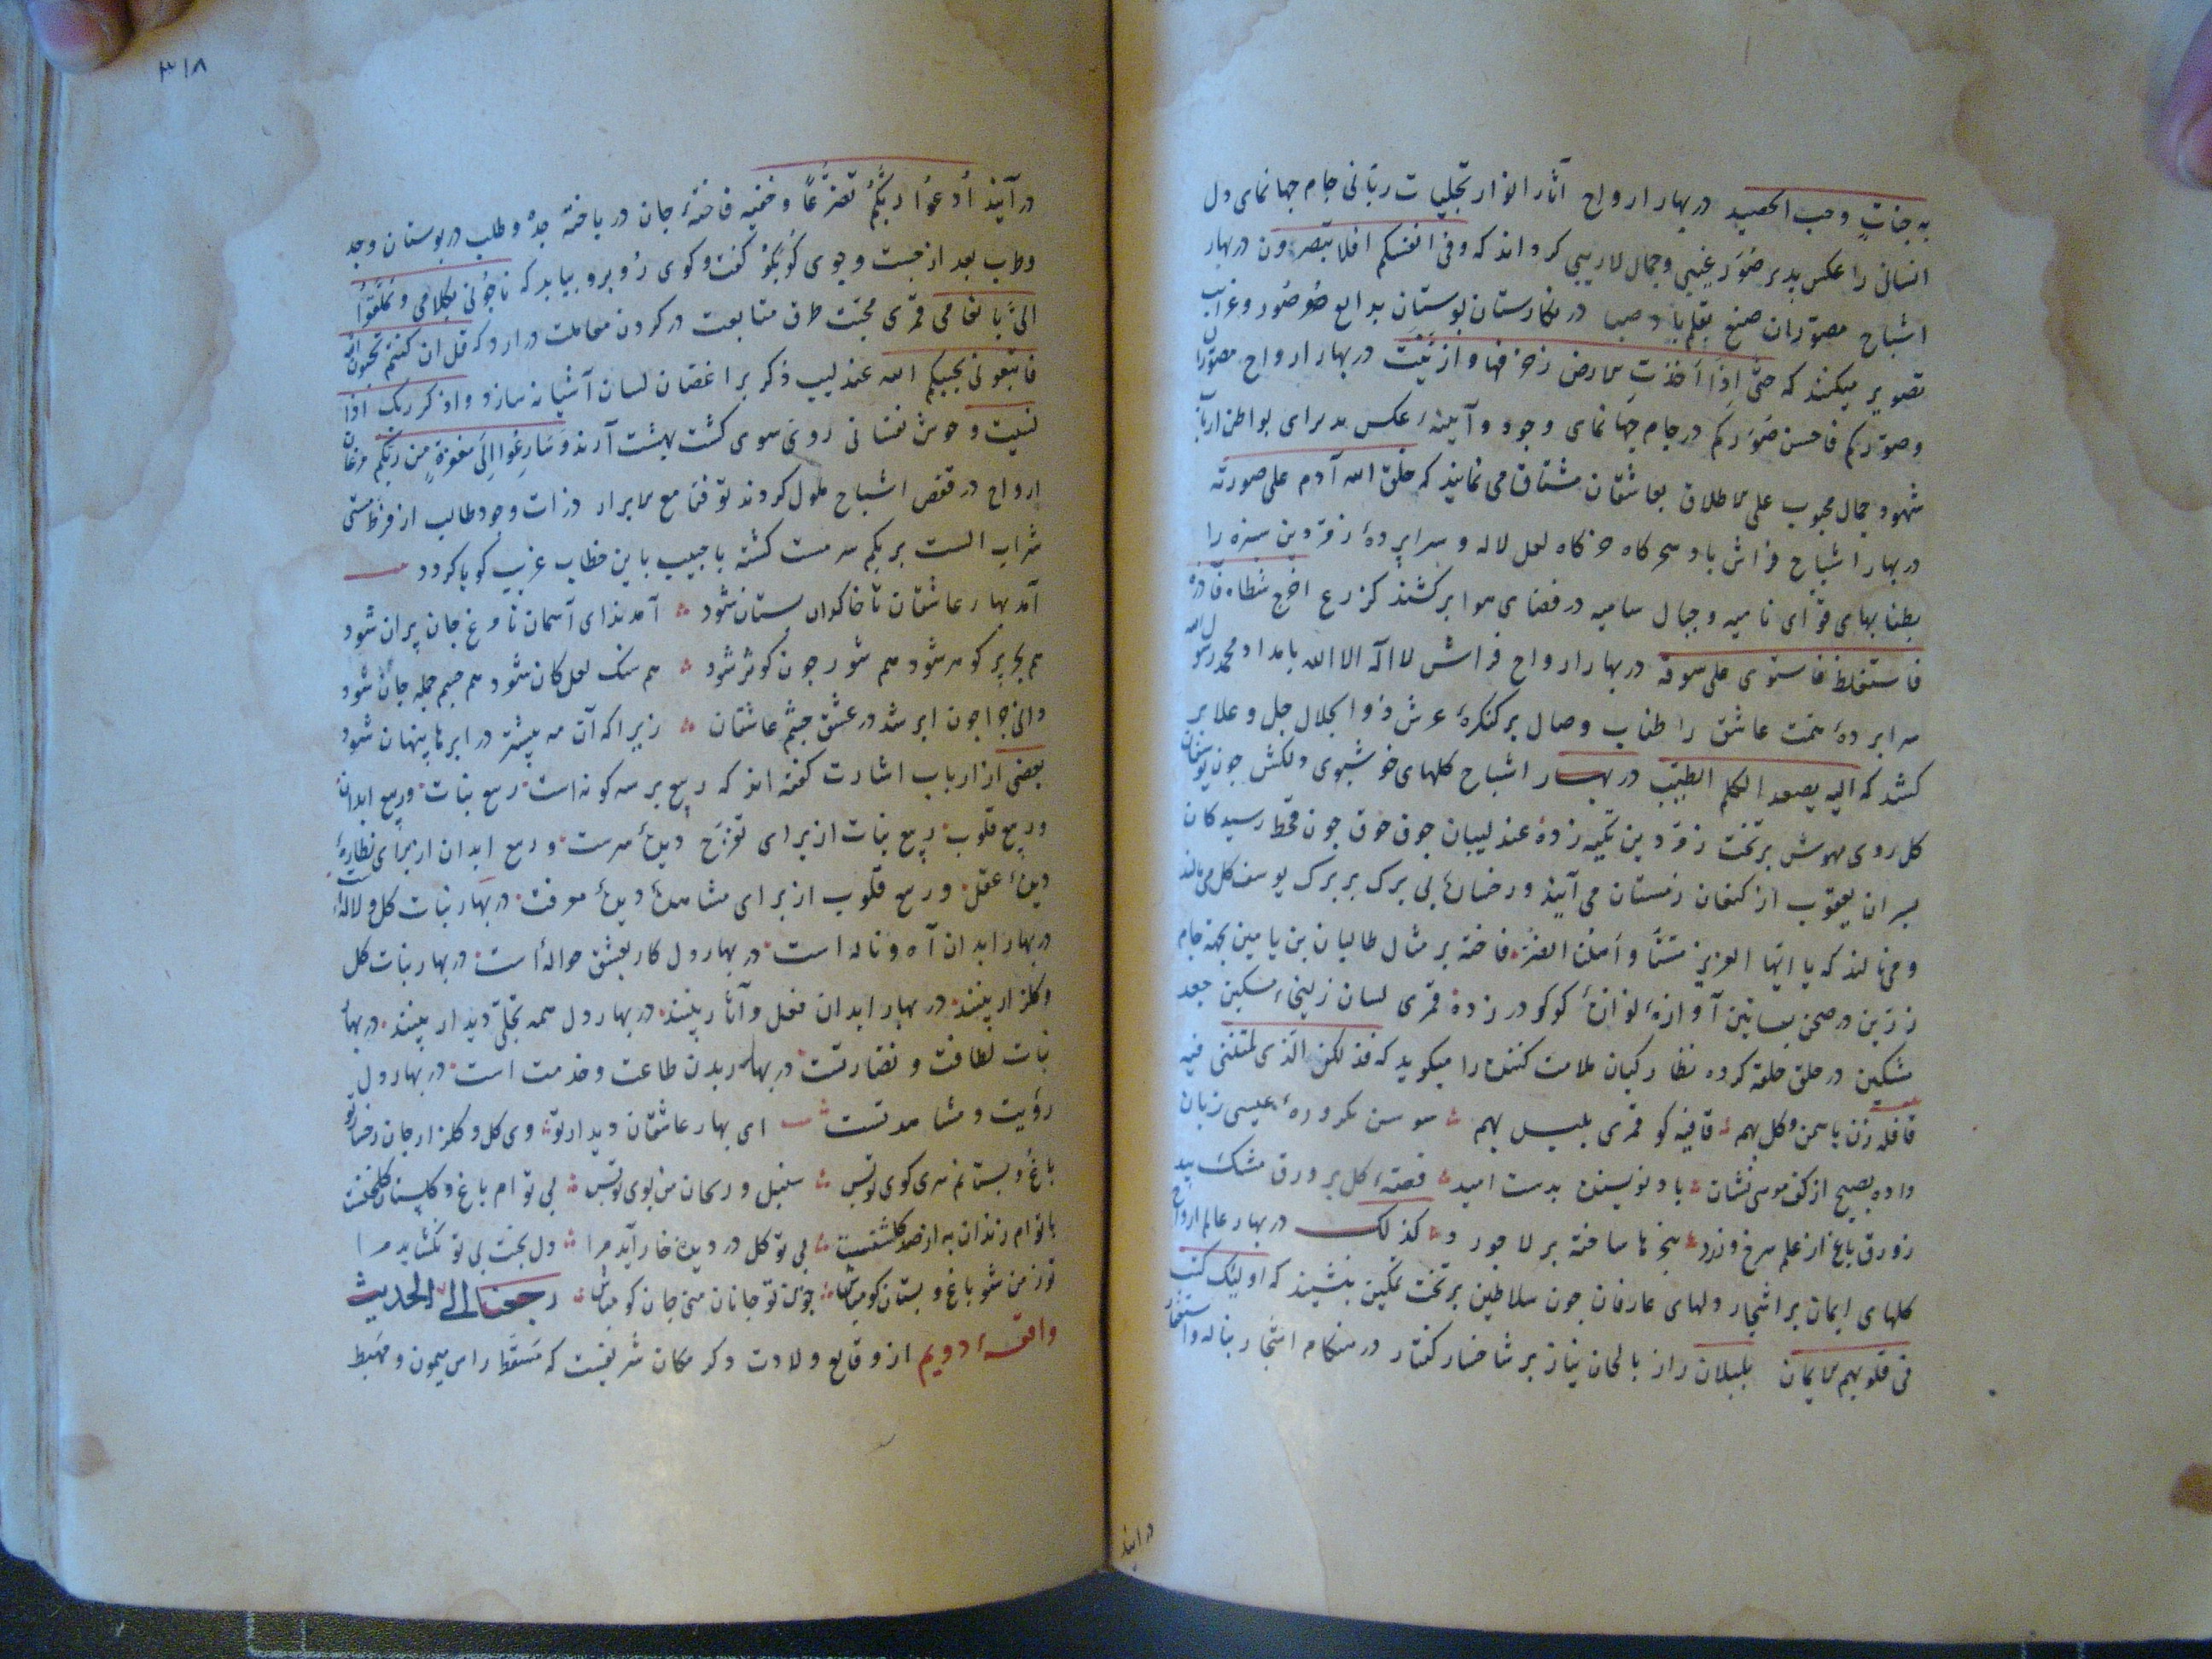 به جنات وحب الحصید در بهار ارواح آثار انوار تجلیات ربانی جام جهانمای دل
انسانی را عکس پذیر صُوَر غیبی و جمال لاریبی کرداند که وفی انفسکم افلا تبصرون در بهار
اشباح مصوّران صنع بقلم باد صبا در نکارستان بوستان بدایع صُوَر و غرایب
تصویر میکنند که حتّی اِذَا اَخَذَتِ الارض زخرفها و ازیّنَت در بهار ارواح مصوّران
وصوّرکم فاحسن صُوَرکم در جام جهانمای وجود و آیینهٔ عکس پذیرای بواطن ارباب
شهود جمال محبوب علی الاطلاق بعاشقان مشتاق می نمایند که خلق الله آدم علی صورته
در بهار اشباح فراش باد سحرکاه خرکاه لعل لاله و سراپردهٔ زمردین سبزه را
بطنابهای قوّای نامیه و جبال سامیه در فضای هوا برکشند کزرع اخرج شطاه فآزره
فاستغلظ فاستوی علی سوقه در بهار ارواح فراش لا اله الا الله بامداد محمد رسول الله
سراپردهٔ همّت عاشق را طناب وصال برکنکرهٔ عرش ذو الجلال جل و علا بر
کشد که الیه یصعد الکلم الطیّب در بهار اشباح کلهای خوشبوی دلکش چون یوسفان
کل روی مهوش بر تخت زمردین تکیه زده عندلیبان جوق جوق چون قحط رسیدکان
پسران یعقوب از کنعان زمستان می آیند و رخسارهٔ بی برک بر برک یوسف کل می مالند
و می نالند که یا ایّها العزیز مسّنَا و اَهلنا الضُرُّ فاخته بر مثال طالبان بن یامین بجهة جام
زرّین در صحن بساتین آوازهٔ کوکو در زده قمری لسان زلیخاء مسکین جعد
مشکین در حلق حلقه کرده نظارکیان ملامت کننده را میکوید که فذلکن الّذی لمتننی فیه
قافله زن یاسمن و کل بهم قافیه کو قمری بلبل بهم سوسن عیسی زبان
داده بصبح از کف موسی نشان باد نویسنده بدست امید قصّهٔ کل بر ورق مشک بید
زورق باغ از علم سرخ و زرد پنجه ها ساخته بر لاجورد کذلک در بهار عالم ارواح
کلهای ایمان بر اشجار دلهای عارفان چون سلاطین بر تخت تمکین بنشیند که اولئک کتب
فی قلوبهم الایمان بلبلان راز بالحان نیاز بر شاخسار کفتار در هنکام اسحار بناله و استغفار
در آیند
٣١٨
در آیند اُدعُوا ربَّکُم تضرّعًا و خفیه فاختهٔ جان در باخته جدّ و طلب در بوستان وجد
و طرب بعد از جست و جوی کُوبَکُو کفت و کوی رُوبرو بیابد که ناجُونی بکلامی و تملّقوا
الیّ بانغامی قمری محبّت طوق متابعت در کردن معاملت در آرد که قل ان کنتم تحبون الله
فاتّبعونی یحببکم الله عندلیب ذکر بر اغصان لسان آشیانه سازد واذکر ربّک اذا
نسیت وحوش نفسانی روی سوی کشت بهشت آرند وَسَارِعُوا اِلَی مغفرةٍ من ربّکم مرغان
ارواح در قفص اشباح ملول کردند توفنا مع الابرار ذرات وجود طالب از فرط مستی
شراب الست بربکم سرمست کشته با حبیب باین خطاب غریب کویا کردد
آمد بهار عاشقان تا خاکدان بستان شود آمد ندای آسمان تا مرغ جان پران شود
هم بحر پر کوهر شود هم شور چون کوثر شود هم سنک لعل کان شود هم جسم جمله جان شود
دانی چرا چون ابر شد در عشق چشم عاشقان زیرا که آن مه بیشتر در ابرها پنهان شود
بعضی از ارباب اشارت کفته اند که ربیع بر سه کونه است ربیع نبات و ربیع ابدان
و ربیع قلوب ربیع نبات از برای تفرّج دیدهٔ سرست و ربیع ابدان از برای نظارهٔ
دیدهٔ عقل و ربیع قلوب از برای مشاهدهٔ دیدهٔ معرفت در بهار نبات کل و لاله است
در بهار ابدان آه و ناله است در بهار دل کار بعشق حواله است در بهار نبات کل
و کلزار بینند در بهار ابدان فعل و آثار بینند در بهار دل همه تجلّی دیدار بینند در بهار
نبات لطافت و نضارتست در بهار بدن طاعت و خدمت است در بهار دل
رؤیت و مشاهدتست ای بهار عاشقان دیدار تو وی کل و کلزار جان رخسار تو
باغ و بستانم سری کوی تو بس سنبل و ریحان من بوی تو بس بی تو ام باغ و کلستان کلخنست
با تو ام زندان به از صد کلشنست بی تو کل در دیده خار آید مرا دل بجنت بی تو نکشاید مرا
تو ز من شو باغ و بستان کو مباش چون تو جانان منی جان کو مباش رجعنا الی الحدیث
واقعهٔ دویم از وقایع ولادت ذکر مکان شریفست که مَسقَط راس میمون و مهبط